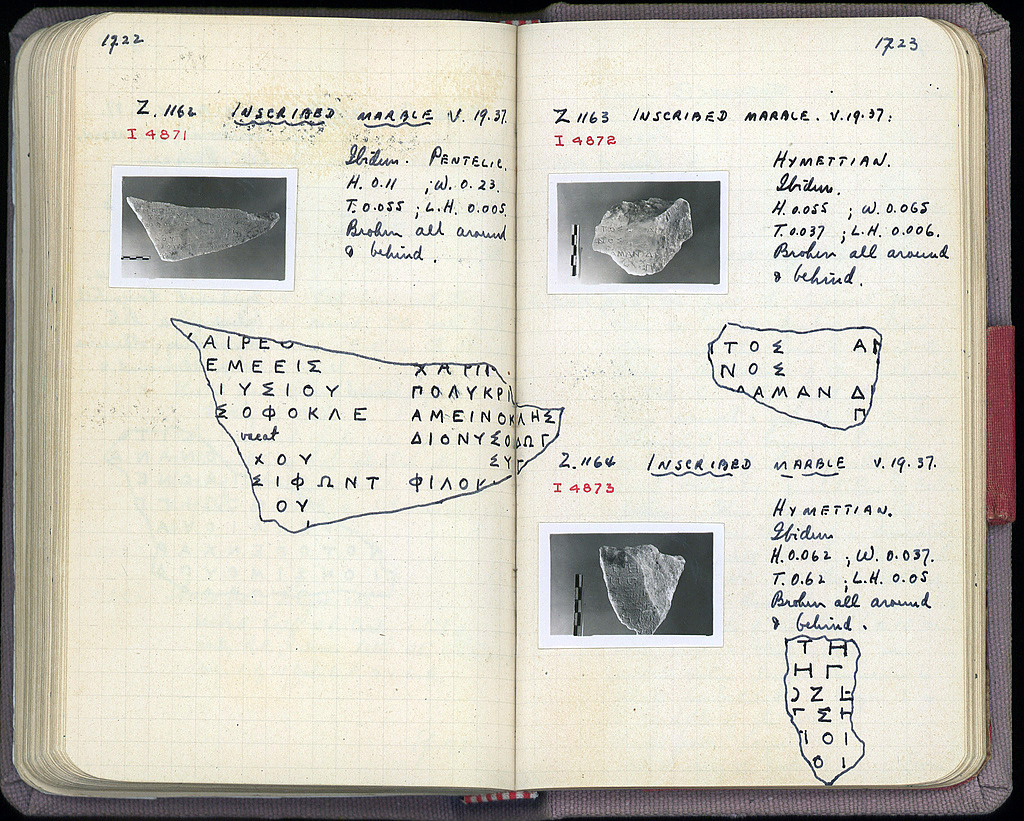 1722
Z. 1162 INSCRIBED MARBLE V. 19.37.
I 4871
Ibidem. PENTELIC.
H. 0.11 ; W. 0.23.
T. 0.055 ; L.H. 0.005.
Broken all around
& behind.
ΑΙΡΕΟ
ΕΜΕΕΙΣ ΧΑΡΙ
ΙΥΣΙΟΥ ΠΟΛΥΚΡΙ
ΣΟΦΟΚΛΕ ΑΜΕΙΝΟΚΛΗΣ
vacat ΔΙΟΝΥΣΟΔΩΓ
ΧΟΥ ΣΥΓ
ΣΙΦΩΝΤ ΦΙΛΟΚ
ΟΥ
1723
Z 1163 INSCRIBED MARBLE. V.19.37:
I 4872
HYMETTIAN.
Ibidem.
H. 0.055 ; W. 0.065
T. 0.037 ; L.H. 0.006.
Broken all around
& behind.
ΤΟΣ ΑΝ
ΝΟΣ
ΔΑΜΑΝΔ
Π
Z. 1164 INSCRIBED MARBLE V.19.37.
I 4873
HYMETTIAN.
Ibidem
H. 0.062 ; W. 0.037.
T. 0.62 ; L.H. 0.05
Broken all around
& behind.
ΤΗ
ΗΓ
ΟΖΕ
ΓΣΤ
ΙΟΙ
ΟΙ